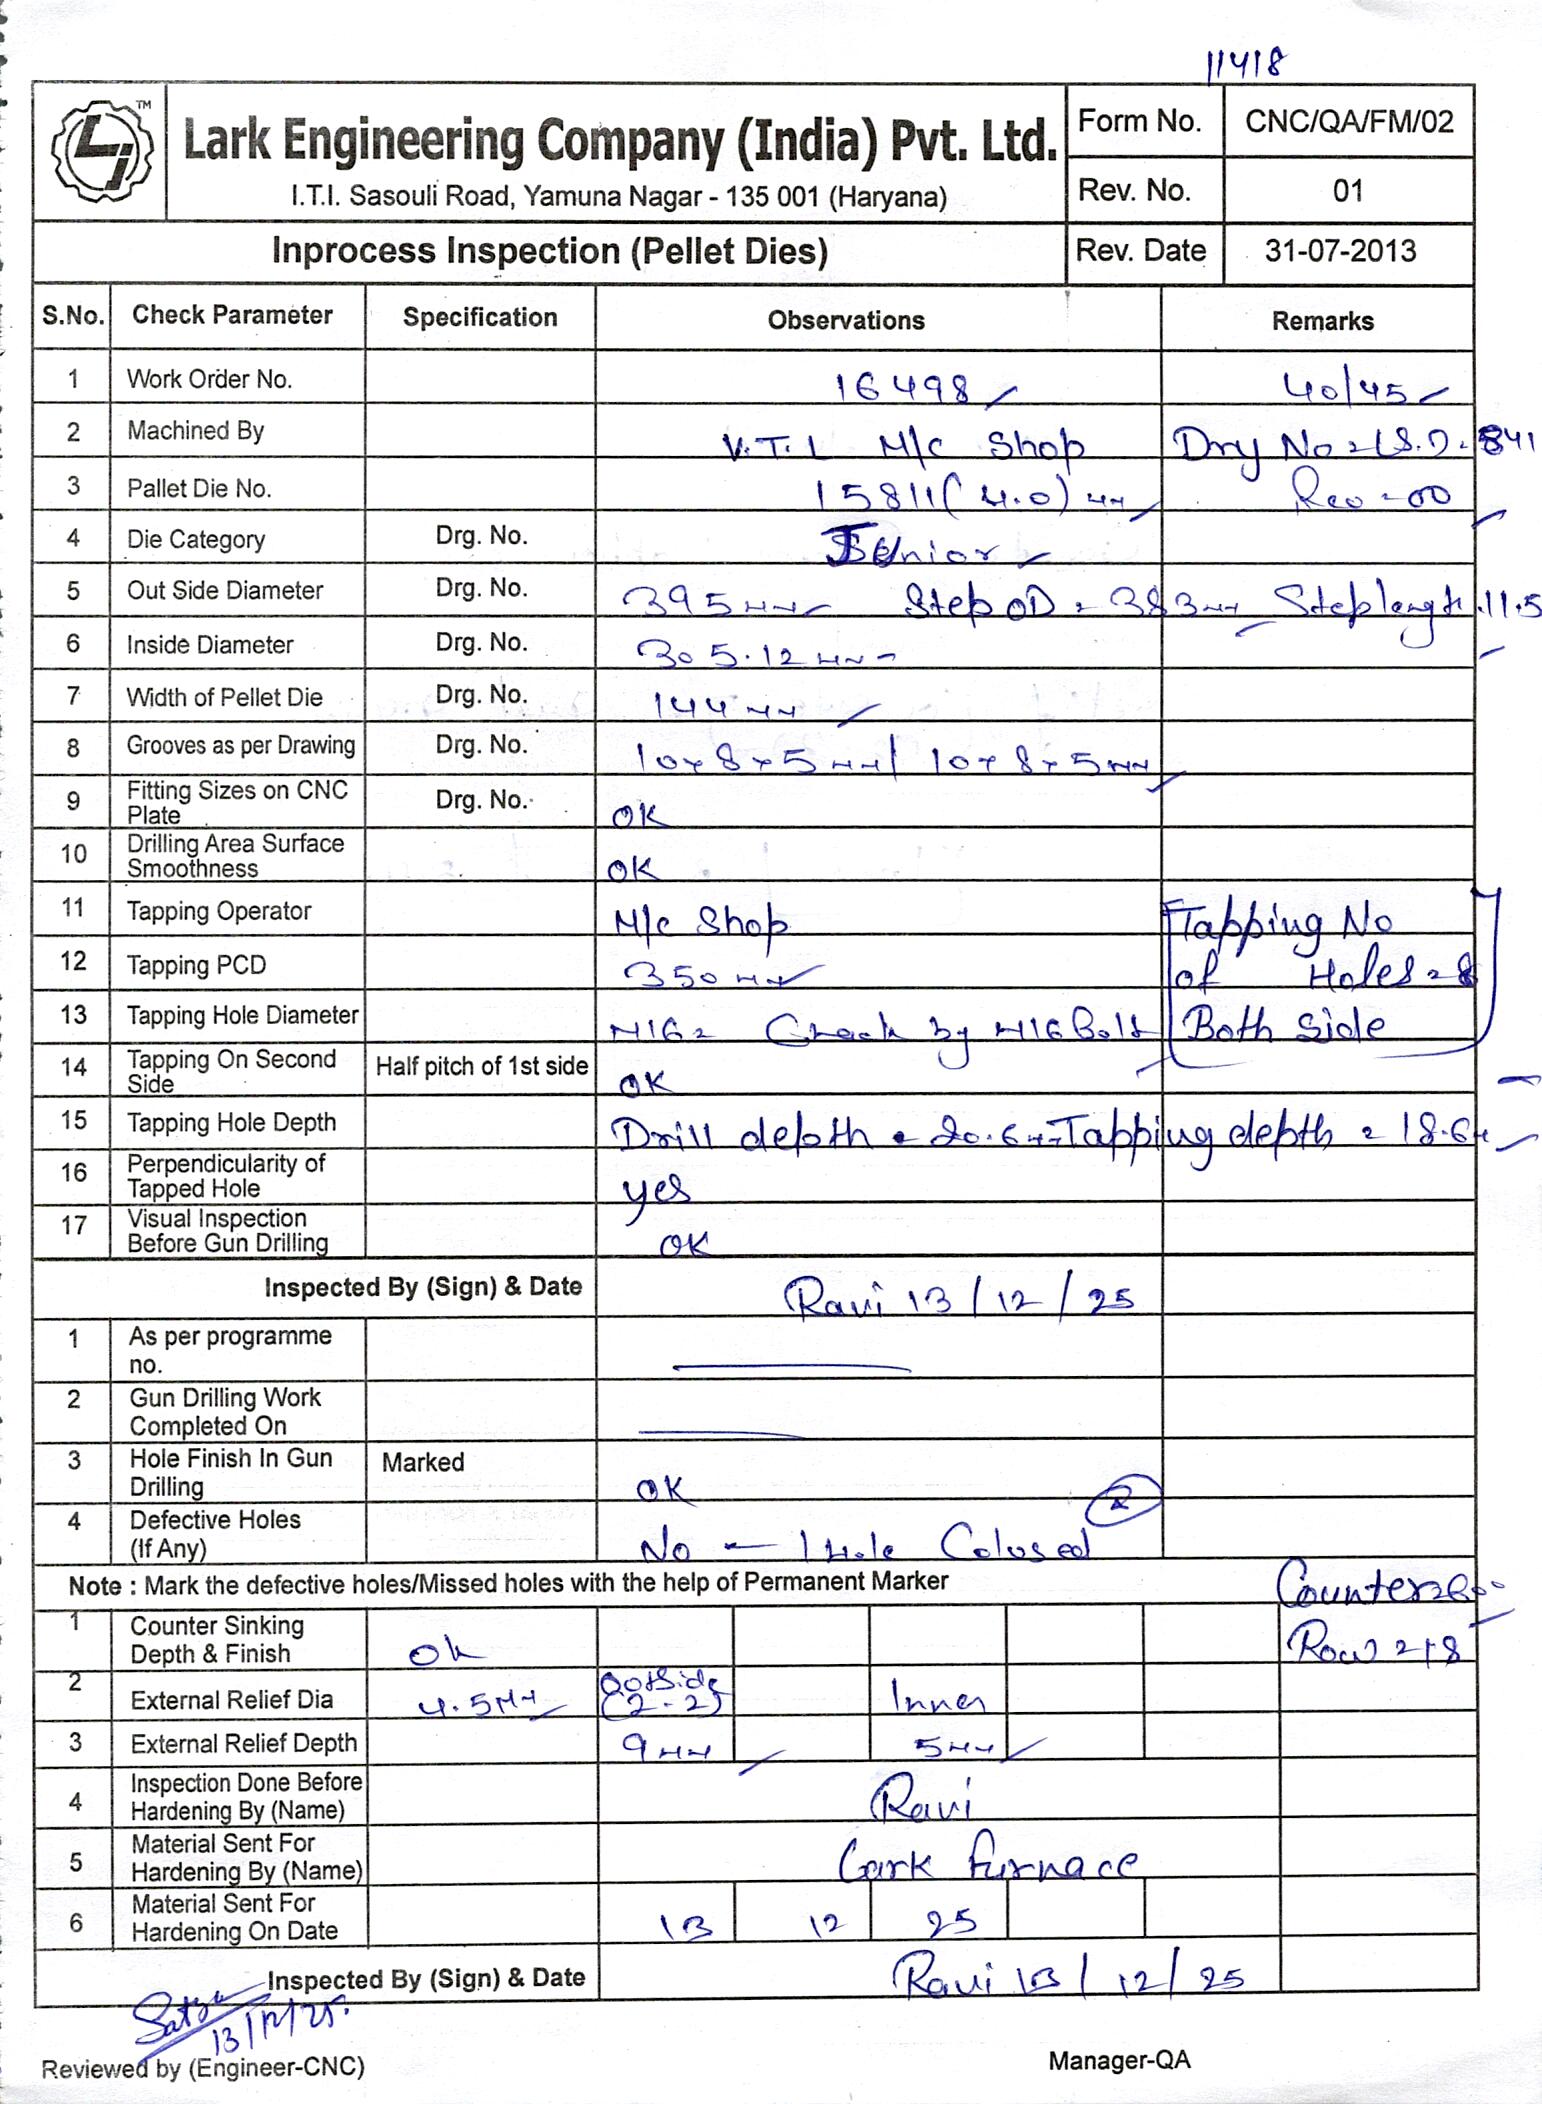 11418
TM
Lark Engineering Company (India) Pvt. Ltd.
I.T.I. Sasouli Road, Yamuna Nagar - 135 001 (Haryana)
Form No. CNC/QA/FM/02
Rev. No. 01
Inprocess Inspection (Pellet Dies) Rev. Date 31-07-2013
S.No. Check Parameter Specification Observations Remarks
1 Work Order No. 16498 40/45
2 Machined By V.T.L M/c Shop Drg No = LS.D- 841
3 Pallet Die No. 15811 (4.0) mm Rev = 00
4 Die Category Drg. No. Junior
5 Out Side Diameter Drg. No. 395mm Step OD = 383mm Step length = 11.5
6 Inside Diameter Drg. No. 305.12 mm
7 Width of Pellet Die Drg. No. 144 mm
8 Grooves as per Drawing Drg. No. 10x8x5mm/ 10x8x5mm
9 Fitting Sizes on CNC Plate Drg. No. OK
10 Drilling Area Surface Smoothness OK
11 Tapping Operator M/c Shop Tapping No
12 Tapping PCD 350mm of Holes = 8
13 Tapping Hole Diameter M16 = Check by M16 Bolt Both Side
14 Tapping On Second Side Half pitch of 1st side OK
15 Tapping Hole Depth Drill depth = 20.6mm Tapping depth = 18.6m
16 Perpendicularity of Tapped Hole yes
17 Visual Inspection Before Gun Drilling OK
Inspected By (Sign) & Date Ravi 13/12/25
1 As per programme no.
2 Gun Drilling Work Completed On
3 Hole Finish In Gun Drilling Marked OK
4 Defective Holes (If Any) No - 1 Hole Colused
Note : Mark the defective holes/Missed holes with the help of Permanent Marker Counter
1 Counter Sinking Depth & Finish Ok Row = 18
2 External Relief Dia 4.5mm Outside (2-2) Inner
3 External Relief Depth 9mm 5mm
4 Inspection Done Before Hardening By (Name) Ravi
5 Material Sent For Hardening By (Name) Lark furnace
6 Material Sent For Hardening On Date 13 12 25
Inspected By (Sign) & Date Ravi 13/12/25
13/12/25
Reviewed by (Engineer-CNC) Manager-QA